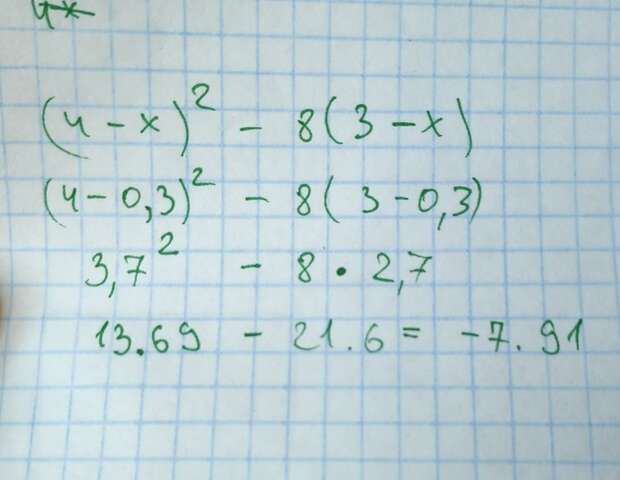 4x
(4 - x)² - 8(3 - x)
(4 - 0,3)² - 8(3 - 0,3)
3,7² - 8 · 2,7
13.69 - 21.6 = -7.91